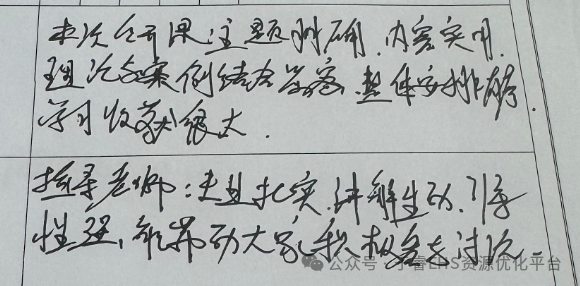 本次公开课:主题明确、内容实用、
理论与案例结合紧密、整体安排有序、
学习收获很大.
指导老师:专业扎实、讲解生动、引导
性强,能带动大家积极参与讨论.
公众号·小睿EHS资源优化平台